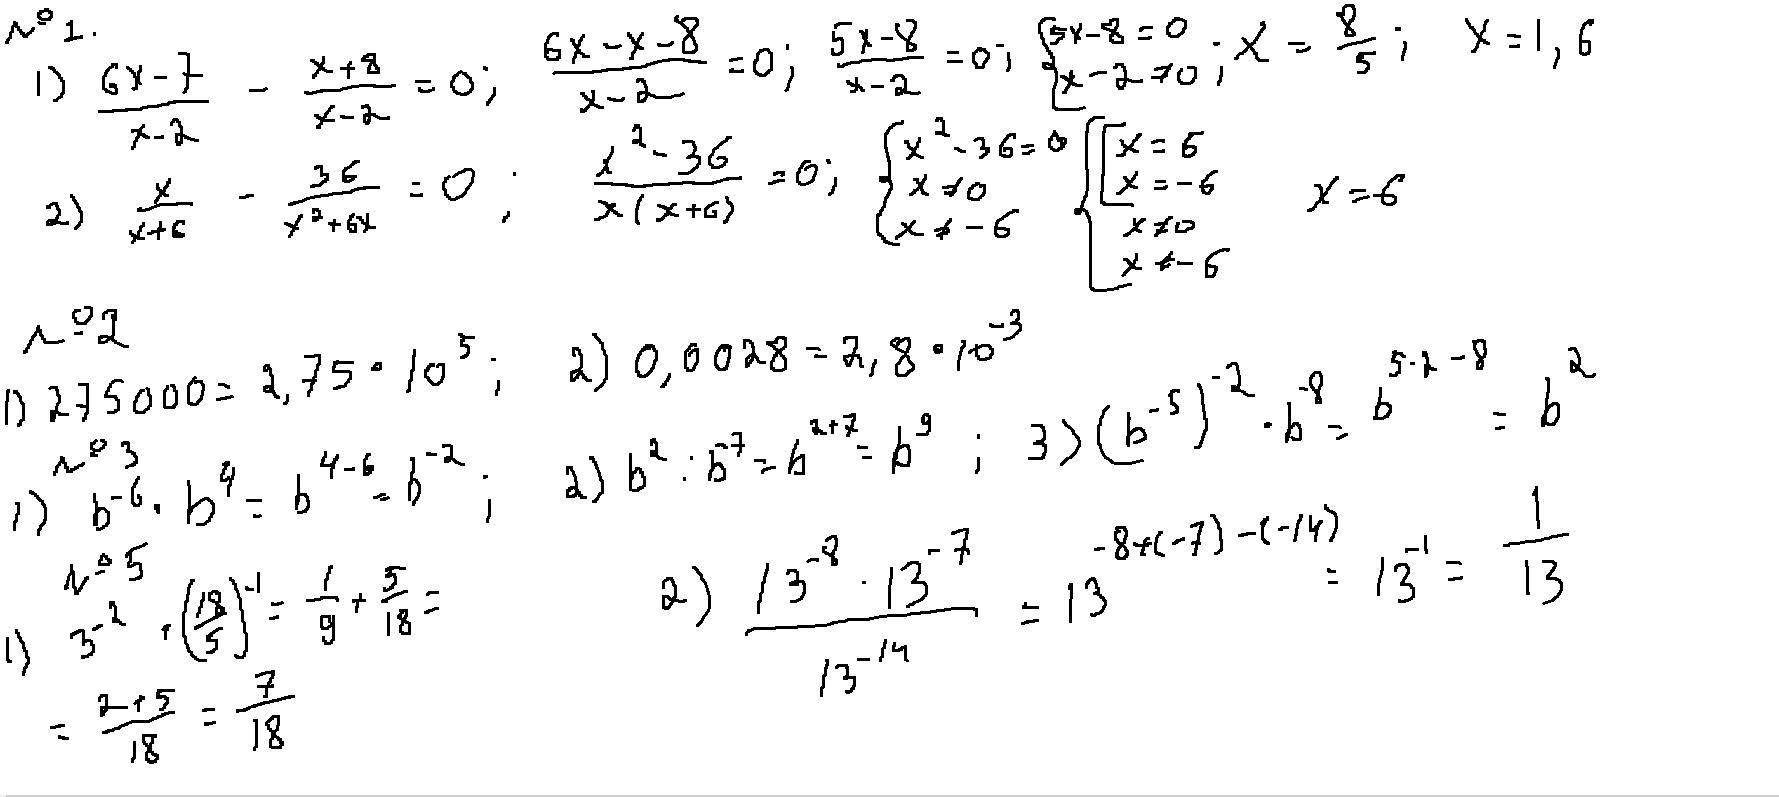 №1.
1) (6x-7)/(x-2) - (x+8)/(x-2) = 0; (6x-x-8)/(x-2) = 0; (5x-8)/(x-2) = 0; {5x-8=0 x-2≠0; x = 8/5; x=1,6
2) x/(x+6) - 36/(x²+6x) = 0; (x²-36)/(x(x+6)) = 0; {x²-36=0 x≠0 x≠-6 {[x=6 x=-6 x≠0 x≠-6 x=6
№2
1) 275000 = 2,75•10⁵; 2) 0,0028 = 2,8•10⁻³
№3
1) b⁻⁶·b⁴ = b⁴⁻⁶ = b⁻²; 2) b²:b⁻⁷ = b²⁺⁷ = b⁹; 3) (b⁻⁵)⁻²·b⁻⁸ = b^(5·2-8) = b²
№5
1) 3⁻² + (18/5)⁻¹ = 1/9 + 5/18 =
= (2+5)/18 = 7/18
2) (13⁻⁸·13⁻⁷)/13⁻¹⁴ = 13^(-8+(-7)-(-14)) = 13⁻¹ = 1/13